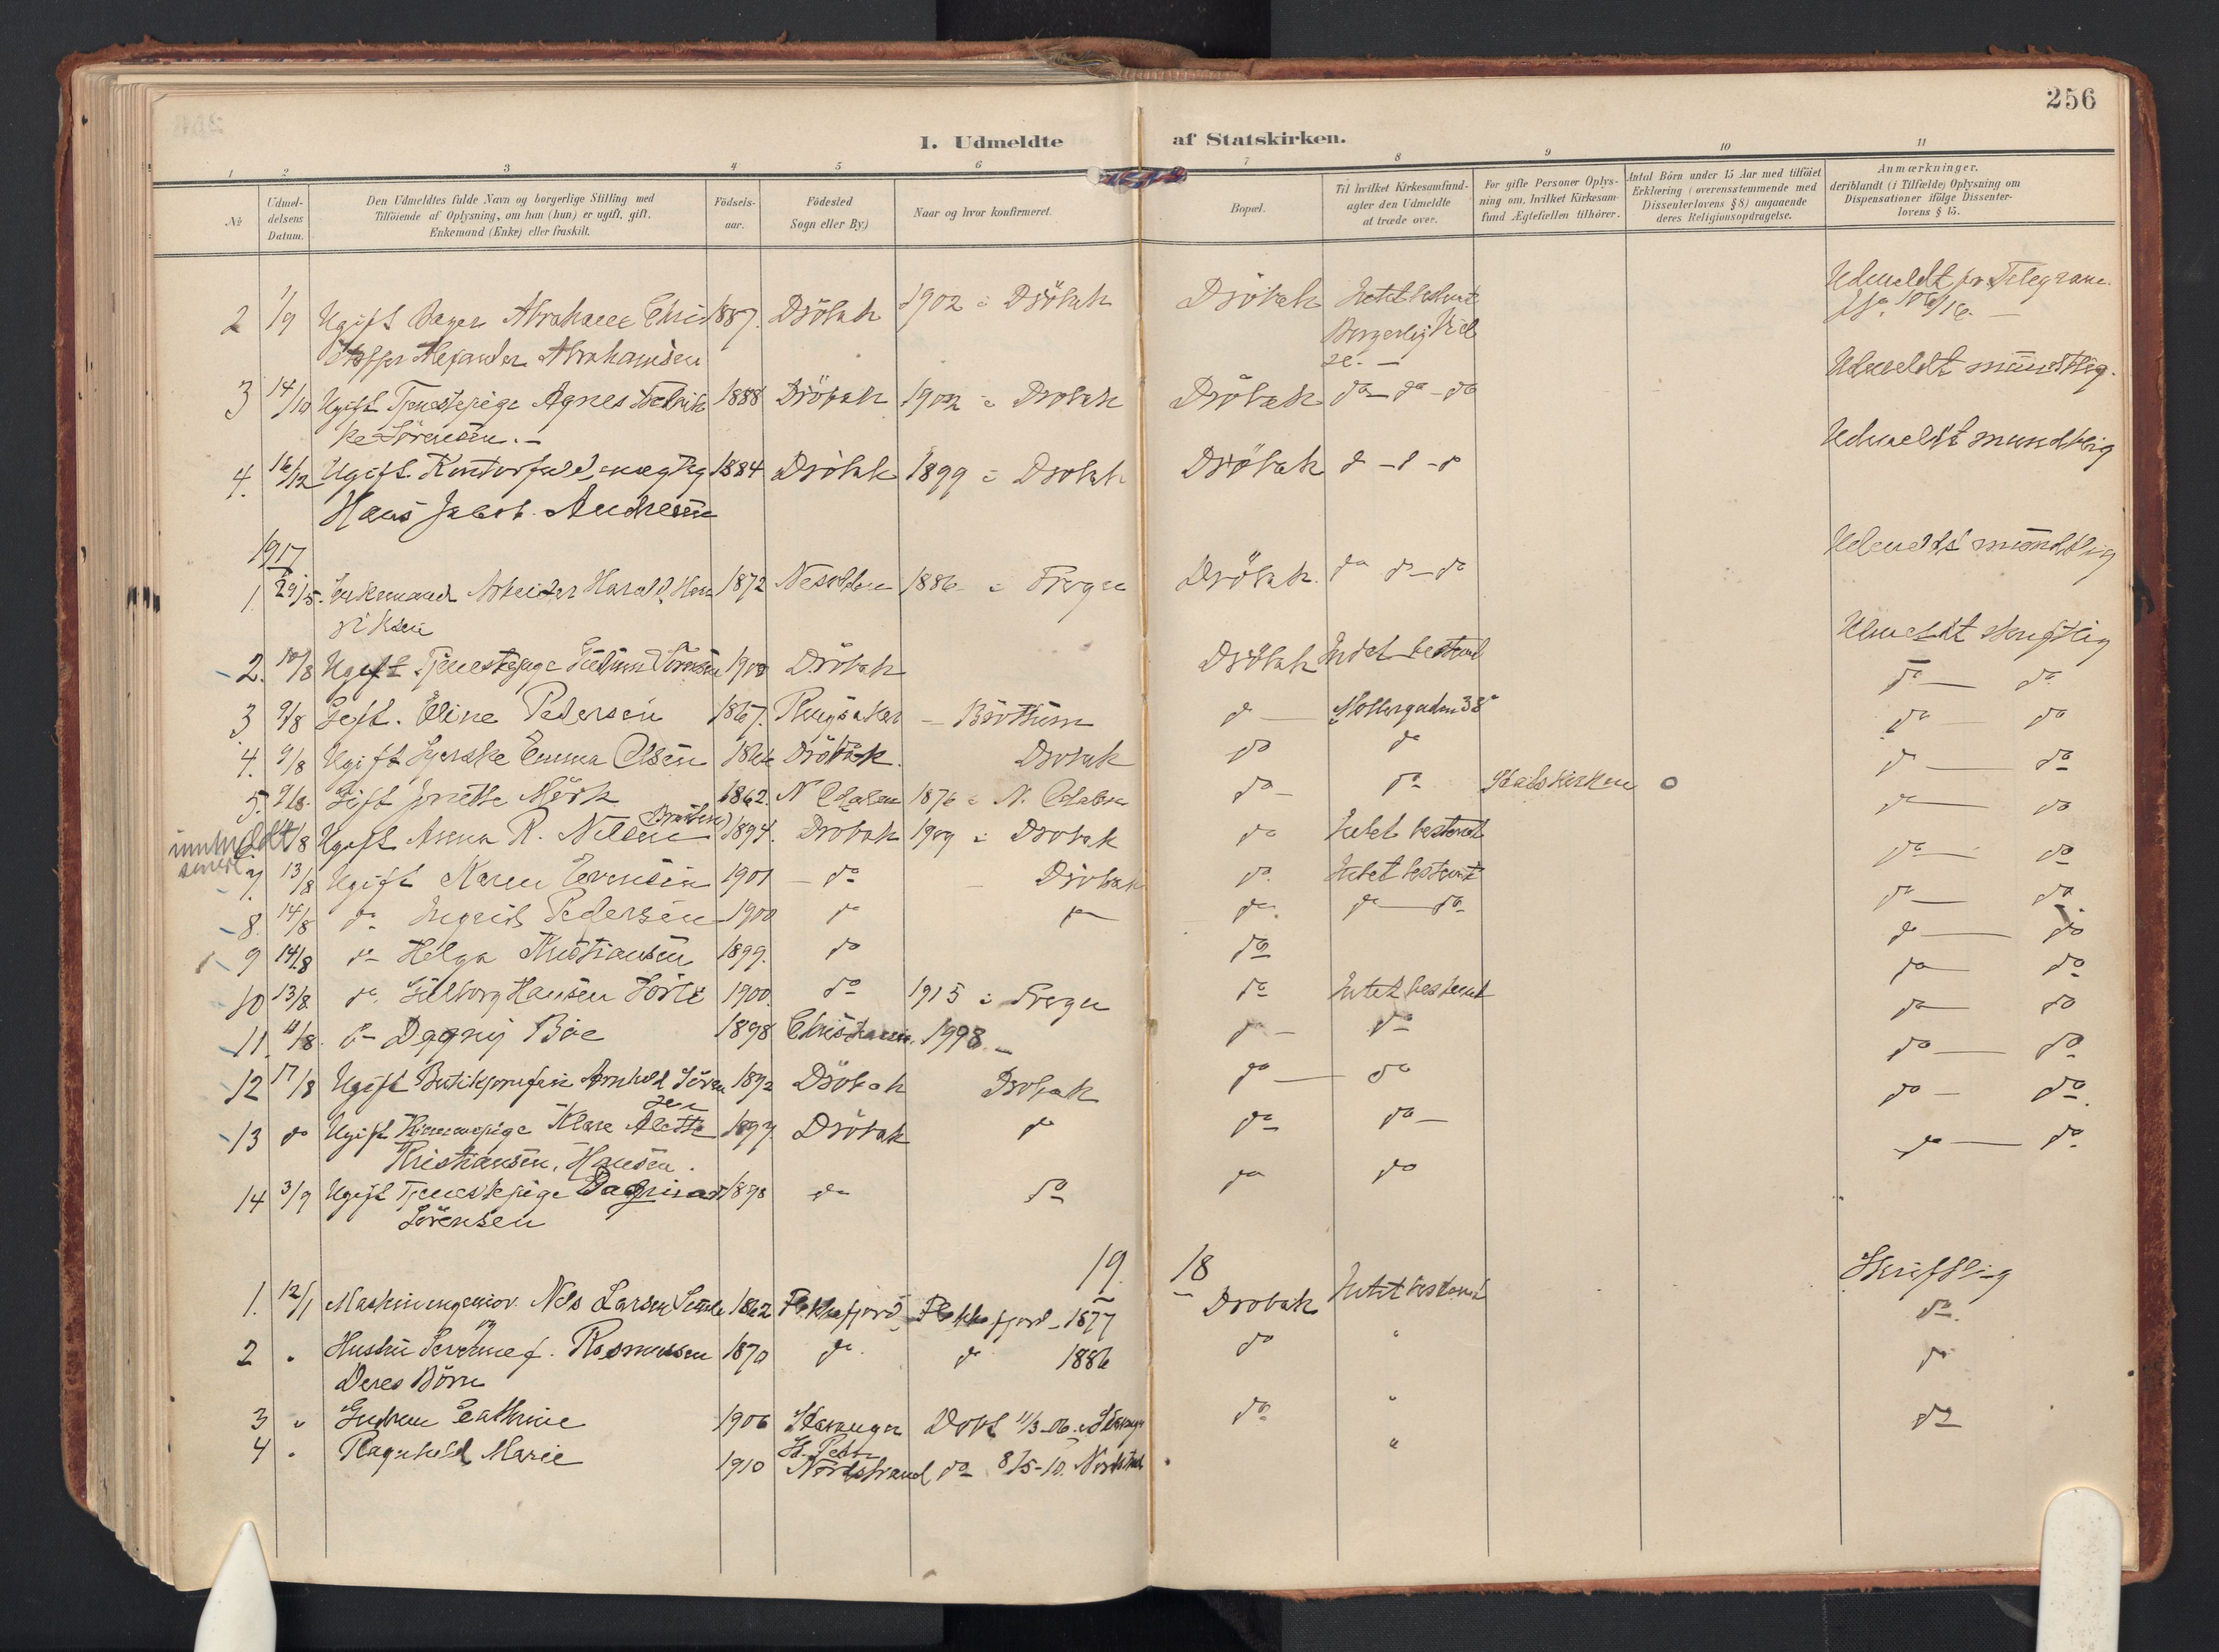 256
1. Udmeldte af Statskirken.
1 2 3 4 5 6 7 8 9 10 11
No
Udmel-
delsens
Datum.
Den Udmeldtes fulde Navn og borgerlige Stilling med
Tilföiende af Oplysning, om han (hun) er ugift, gift,
Enkemand (Enke) eller fraskilt.
Födsels-
aar.
Födested
Sogn eller By)
Naar og hvor konfirmeret.
Bopæl.
Til hvilket Kirkesamfund-
agter den Udmeldte
at træde over.
For gifte Personer Oplys-
ning om, hvilket Kirkesam-
fund Ægtefællen tilhører.
Antal Börn under 15 Aar med tilföiet
Erklæring (overensstemmende med
Dissenterlovens § 8) angaaende
deres Religionsopdragelse.
Anmærkninger.
deriblandt (i Tilfælde) Oplysning om
Dispensationer ifölge Dissenter-
lovens § 15.
2 11/9 Ugift Bager Abraham Chri 1887. Dröbak 1902 i Dröbak Dröbak Intet bestemt Udmeldt pr Telegram.
stoffer Alexander Abrahamsen Borgerlig Viel
se. —
3 14/10 Ugift Tjenestepige Agnes Hedrik 1888 Dröbak 1902 i Drobak Dröbak do — do — do Udmeldt mundtlig.
ke Sörensen. —
4. 16/12 Ugift Kontorfuldmægtig 1884 Dröbak 1899 i Drobak Dröbak Udmeldt mundtlig
Hans Jakob Andresen
1917
1. 29/5. Enkemand Arbeider Harald Hen 1872 Nesodden 1886 i Frogn Dröbak. do do — do Udmeldt mundtlig
riksen
2. 10/8 Ugift Tjenestepige Sörensen 1900 Dröbak Dröbak Intet bestemt Udmeldt skriftlig
3 9/8 Gift. Eline Pedersen 1867. Ringsaker — Bröttum do — Möllergaden 38 do — do
4. 9/8 Ugift Syerske Emma Olsen Dröbak. Drobak do do do — do
5. 9/8. Gift Jonette Mörk 1862. N Odalen 1876 i N. Odalen do — do Statskirken 0 do — do
innmeldt senere /8 Ugift Anna R. Nilsen 1894. Dröbak 1909 i Drobak do Intet bestemt do — do
7. 13/8 Ugift Karen Evensen 1901 — do — Dröbak do. Intet bestemt do — do
8. 14/8 do Ingrid Pedersen 1900 do do do do — do do — do
9 14/8 do Helga Kristiansen 1899. do do do — do
10 13/8. do. Hansen 1900. do 1915 i Frogn do Intet bestemt do — do
11. 11/8. do Dagny Böe 1898 Christiania. do — do do — do
12 17/8 Ugift Arnhold Sören 1892 Dröbak Drobak do — do do — do
sen
13 do Ugift Klara Alette 1897. Dröbak do do do — do — do.
Kristiansen, Hansen.
14 3/9 Ugift Tjenestepige Dagmar 1898 do do do do do — do
Sörensen
19 18
1. 12/1 Maskiningeniör. Nils Larsen 1862 Flekkefjord Flekkefjord 1877 Drobak Intet bestemt Skriftlig
2 " Hustru f. Rasmussen 1870 do. do 1886 do " do.
Deres Börn
3 " Gudrun Cathrine 1906 Stavanger Döbt 11/3-06. i Stavanger do " do
St. Petri
4 " Ragnhild Marie 1910 Nordstrand do 8/5-10. Nordstrand " do